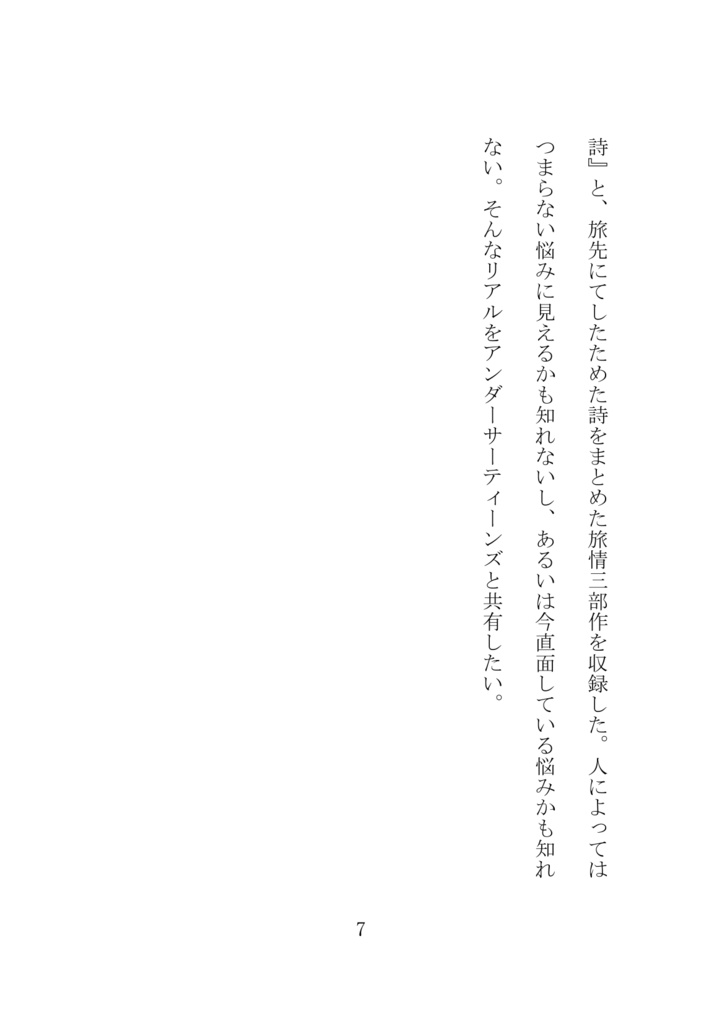 詩』と、旅先にてしたためた詩をまとめた旅情三部作を収録した。人によっては
つまらない悩みに見えるかも知れないし、あるいは今直面している悩みかも知れ
ない。そんなリアルをアンダーサーティーンズと共有したい。
7